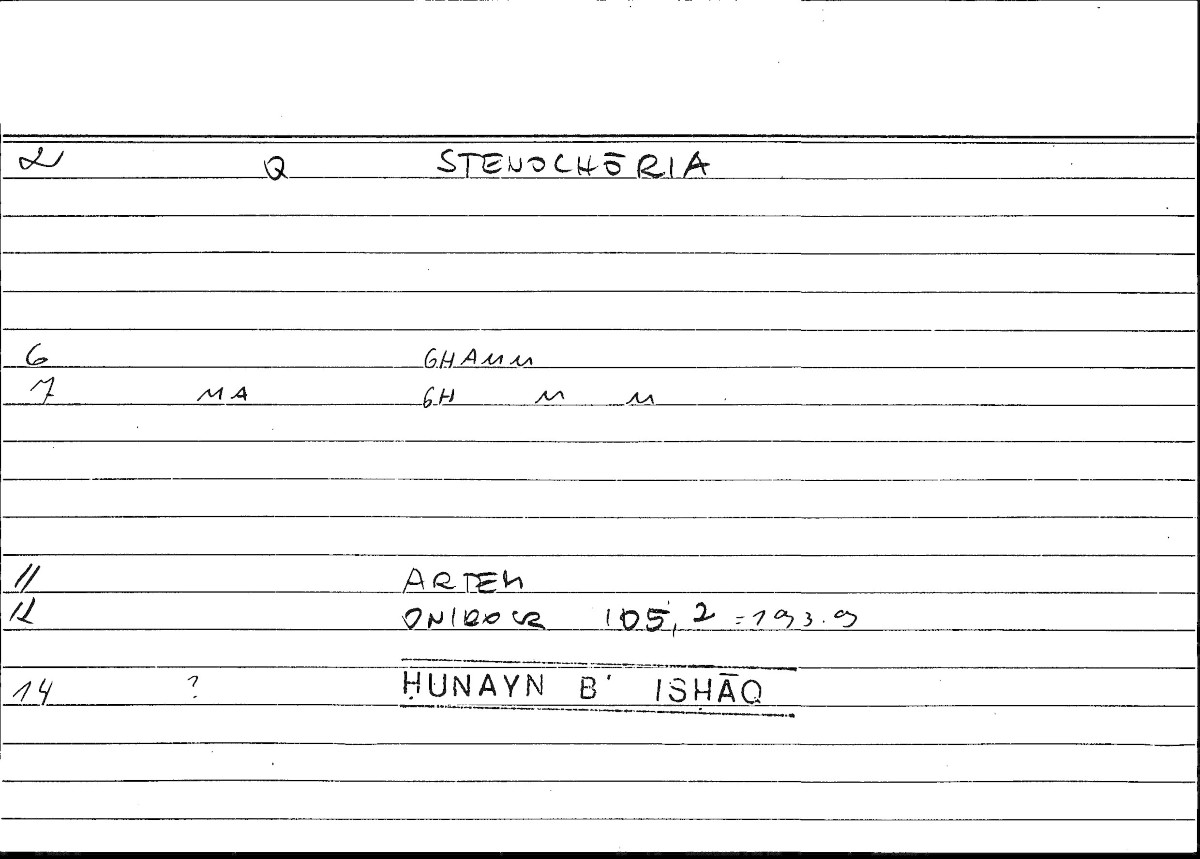 2 Q STENOCHŌRIA
6 GHAMM
7 MA GH M M
11 ARTEM
12 ONIROCR 105,2 =193.9
14 ? ḤUNAYN B' ISḤĀQ